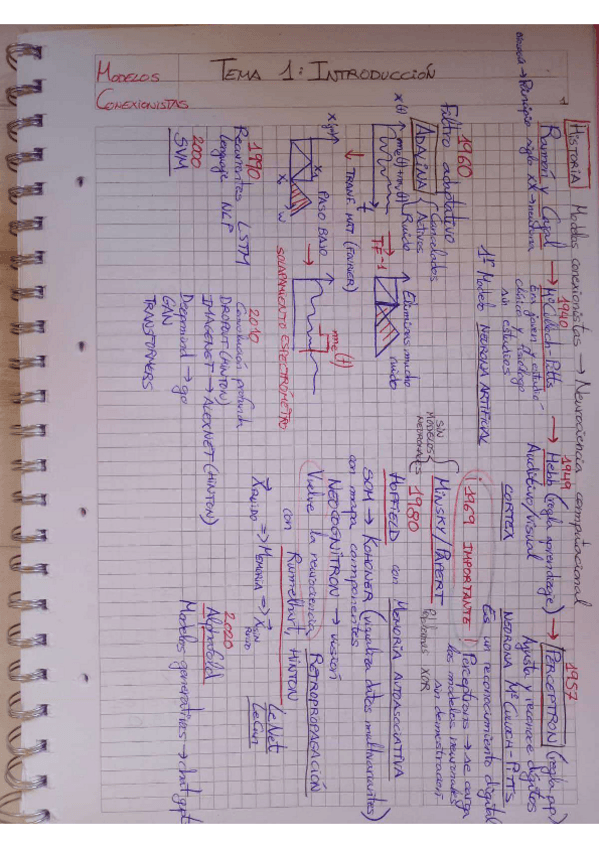 MODELOS CONEXIONISTAS
TEMA 1: INTRODUCCIÓN
HISTORIA Modelos conexionistas → Neurociencia computacional
Ramón y Cajal
Principio siglo XX → neurona
1940
McCulloch-Pitts
Era joven y estudió
clínica y fisiólogo
sin estudios
1er Modelo NEURONA ARTIFICIAL
1949
Hebb (regla aprendizaje)
Auditivo/visual
CORTEX
1957
PERCEPTRON (regla pp)
Ajusta y reconoce dígitos
NEURONA McCulloch-PITTS
Es un reconocimiento digital
1960
Filtro adaptativo
ADALINA
Cancelados
Activos
Ruido
x(t)
me(t)+mr(t)
t
TF⁻¹
Eliminas mucho
ruido
TRANF. MAT (FOURIER)
PASO BAJO
w
me(t)
SOLAPAMIENTO ESPECTROMÉTRO
¡1969 IMPORTANTE!
MINSKY/PAPERT
SIN
MODELOS
NEURONALES
Perceptrons → se carga
los modelos neuronales
sin demostración
XOR
1980
HOPFIELD con MEMORIA AUTOASOCIATIVA
SOM → KOHONEN (visualiza datos multivariantes)
con mapa componentes
NEOCOGNITRON → visión
Vuelve la neurociencia RETROPROPAGACIÓN
con Rumelhart, HINTON
X RUIDO => MEMORIA => X SIN RUIDO
LeNet
LeCun
1990
Recurrentes LSTM
Lenguaje NLP
2000
SVM
2010
Convolución profunda
DROPOUT (HINTON)
IMAGENET → ALEXNET (HINTON)
Deepmind → go
GAN
TRANSFORMERS
2020
Alphafold
Modelos generativos → chat gpt